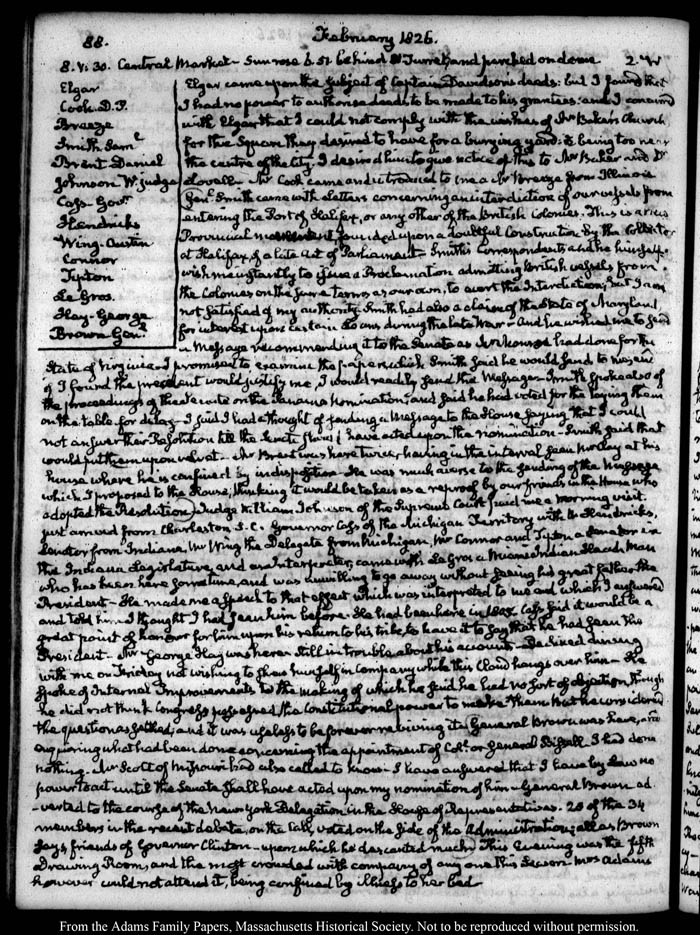 88.
February 1826.
8. V: 30. Central Market - Sun rose 6.51 behind Turret and perched on dome 2. W
Elgar
Cook D. P.
Breeze
Smith Saml
Brent Daniel
Johnson W. judge
Cass Govr
Hendricks
Wing - Austin
Connor
Tipton
Le Gros.
Hay - George
Brown Genl
Elgar came upon the subject of Captain Davidson's deeds: but I found that
I had no power to authorise deeds to be made to his grantees: and I concurred
with Elgar that I could not comply with the wishes of Mr Baker's Church
for the Square they desired to have for a burying yard: it being too near
the centre of the City. I desired him to give notice of this to Mr Baker and Dr
Lovell - Mr Cook came and introduced to me a Mr Breeze from Illinois
Genl Smith came with Letters concerning an interdiction of our vessels from
entering the Port of Halifax, or any other of the British Colonies. This is a
Provincial movement, founded upon a doubtful Construction by the Collector
at Halifax, of a late Act of Parliament - Smith's Correspondents and he himself
wish me instantly to issue a Proclamation admitting British vessels from
the Colonies on the same terms as our own, to avert the Interdiction; but I am
not satisfied of my authority. Smith had also a claim of the State of Maryland,
for interest upon certain Loans during the late War - And he wished me to send
a Message recommending it to the Senate as Mr Monroe had done for the
State of Virginia - I promised to examine the papers, which Smith said he would send to me, and
if I found the precedent would justify me, I would readily send the Message - Smith spoke also of
the proceedings of the Senate on the Panama Nomination, and said he had voted for the laying them
on the table for delay - I said I had a thought of sending a Message to the House saying that I could
not answer their Resolution till the Senate should have acted upon the nomination - Smith said that
would put them upon velvet - Mr Brent was here twice; having in the interval seen Mr Clay at his
house where he is confined by indisposition - He was much averse to the sending of the Message
which I proposed to the House, thinking it would be taken as a reproof by our friends in the House who
adopted the Resolution. Judge William Johnson of the Supreme Court paid me a morning visit.
just arrived from Charleston S. C. Governor Cass of the Michigan Territory with Mr Hendricks,
Senator from Indiana, Mr Wing the Delegate from Michigan, Mr Connor and Tipton a Senator in
the Indiana Legislature, and an Interpreter, came with Le Gros a Miami Indian Head Man
who has been here some time, and was unwilling to go away without seeing his great father the
President - He made me a speech to that effect which was interpreted to me and which I answered
and told him I thought I had seen him before. He had been here in Cass said it would be a
great point of honour for him upon his return to his tribe, to have it to say that he had seen the
President - Mr George Hay was here - still in trouble about his accounts - Declined dining
with me on Friday not wishing to shew himself in company while this cloud hangs over him - He
spoke of Internal Improvements to the making of which he said he had no sort of objection, though
he did not think Congress possessed the Constitutional power to make them - But he considered
the question as settled, and it was useless to be forever reviving it. General Brown was here, and
enquiring what had been done concerning the appointment of Coll. or General Bissell. I had done
nothing - Mr Scott of Missouri had also called to know - I have answered that I have by Law no
power to act until the Senate shall have acted upon my nomination of him - General Brown ad-
-verted to the course of the New York Delegation in the House of Representatives - 28 of the 34
members in the recent debate, on the Call, voted on the side of the Administration; all as Brown
says, friends of Governor Clinton - upon which he descanted much. This Evening was the fifth
Drawing Room, and the most crowded with company of any one this Season. Mrs Adams
however could not attend it, being confined by illness to her bed -
From the Adams Family Papers, Massachusetts Historical Society. Not to be reproduced without permission.